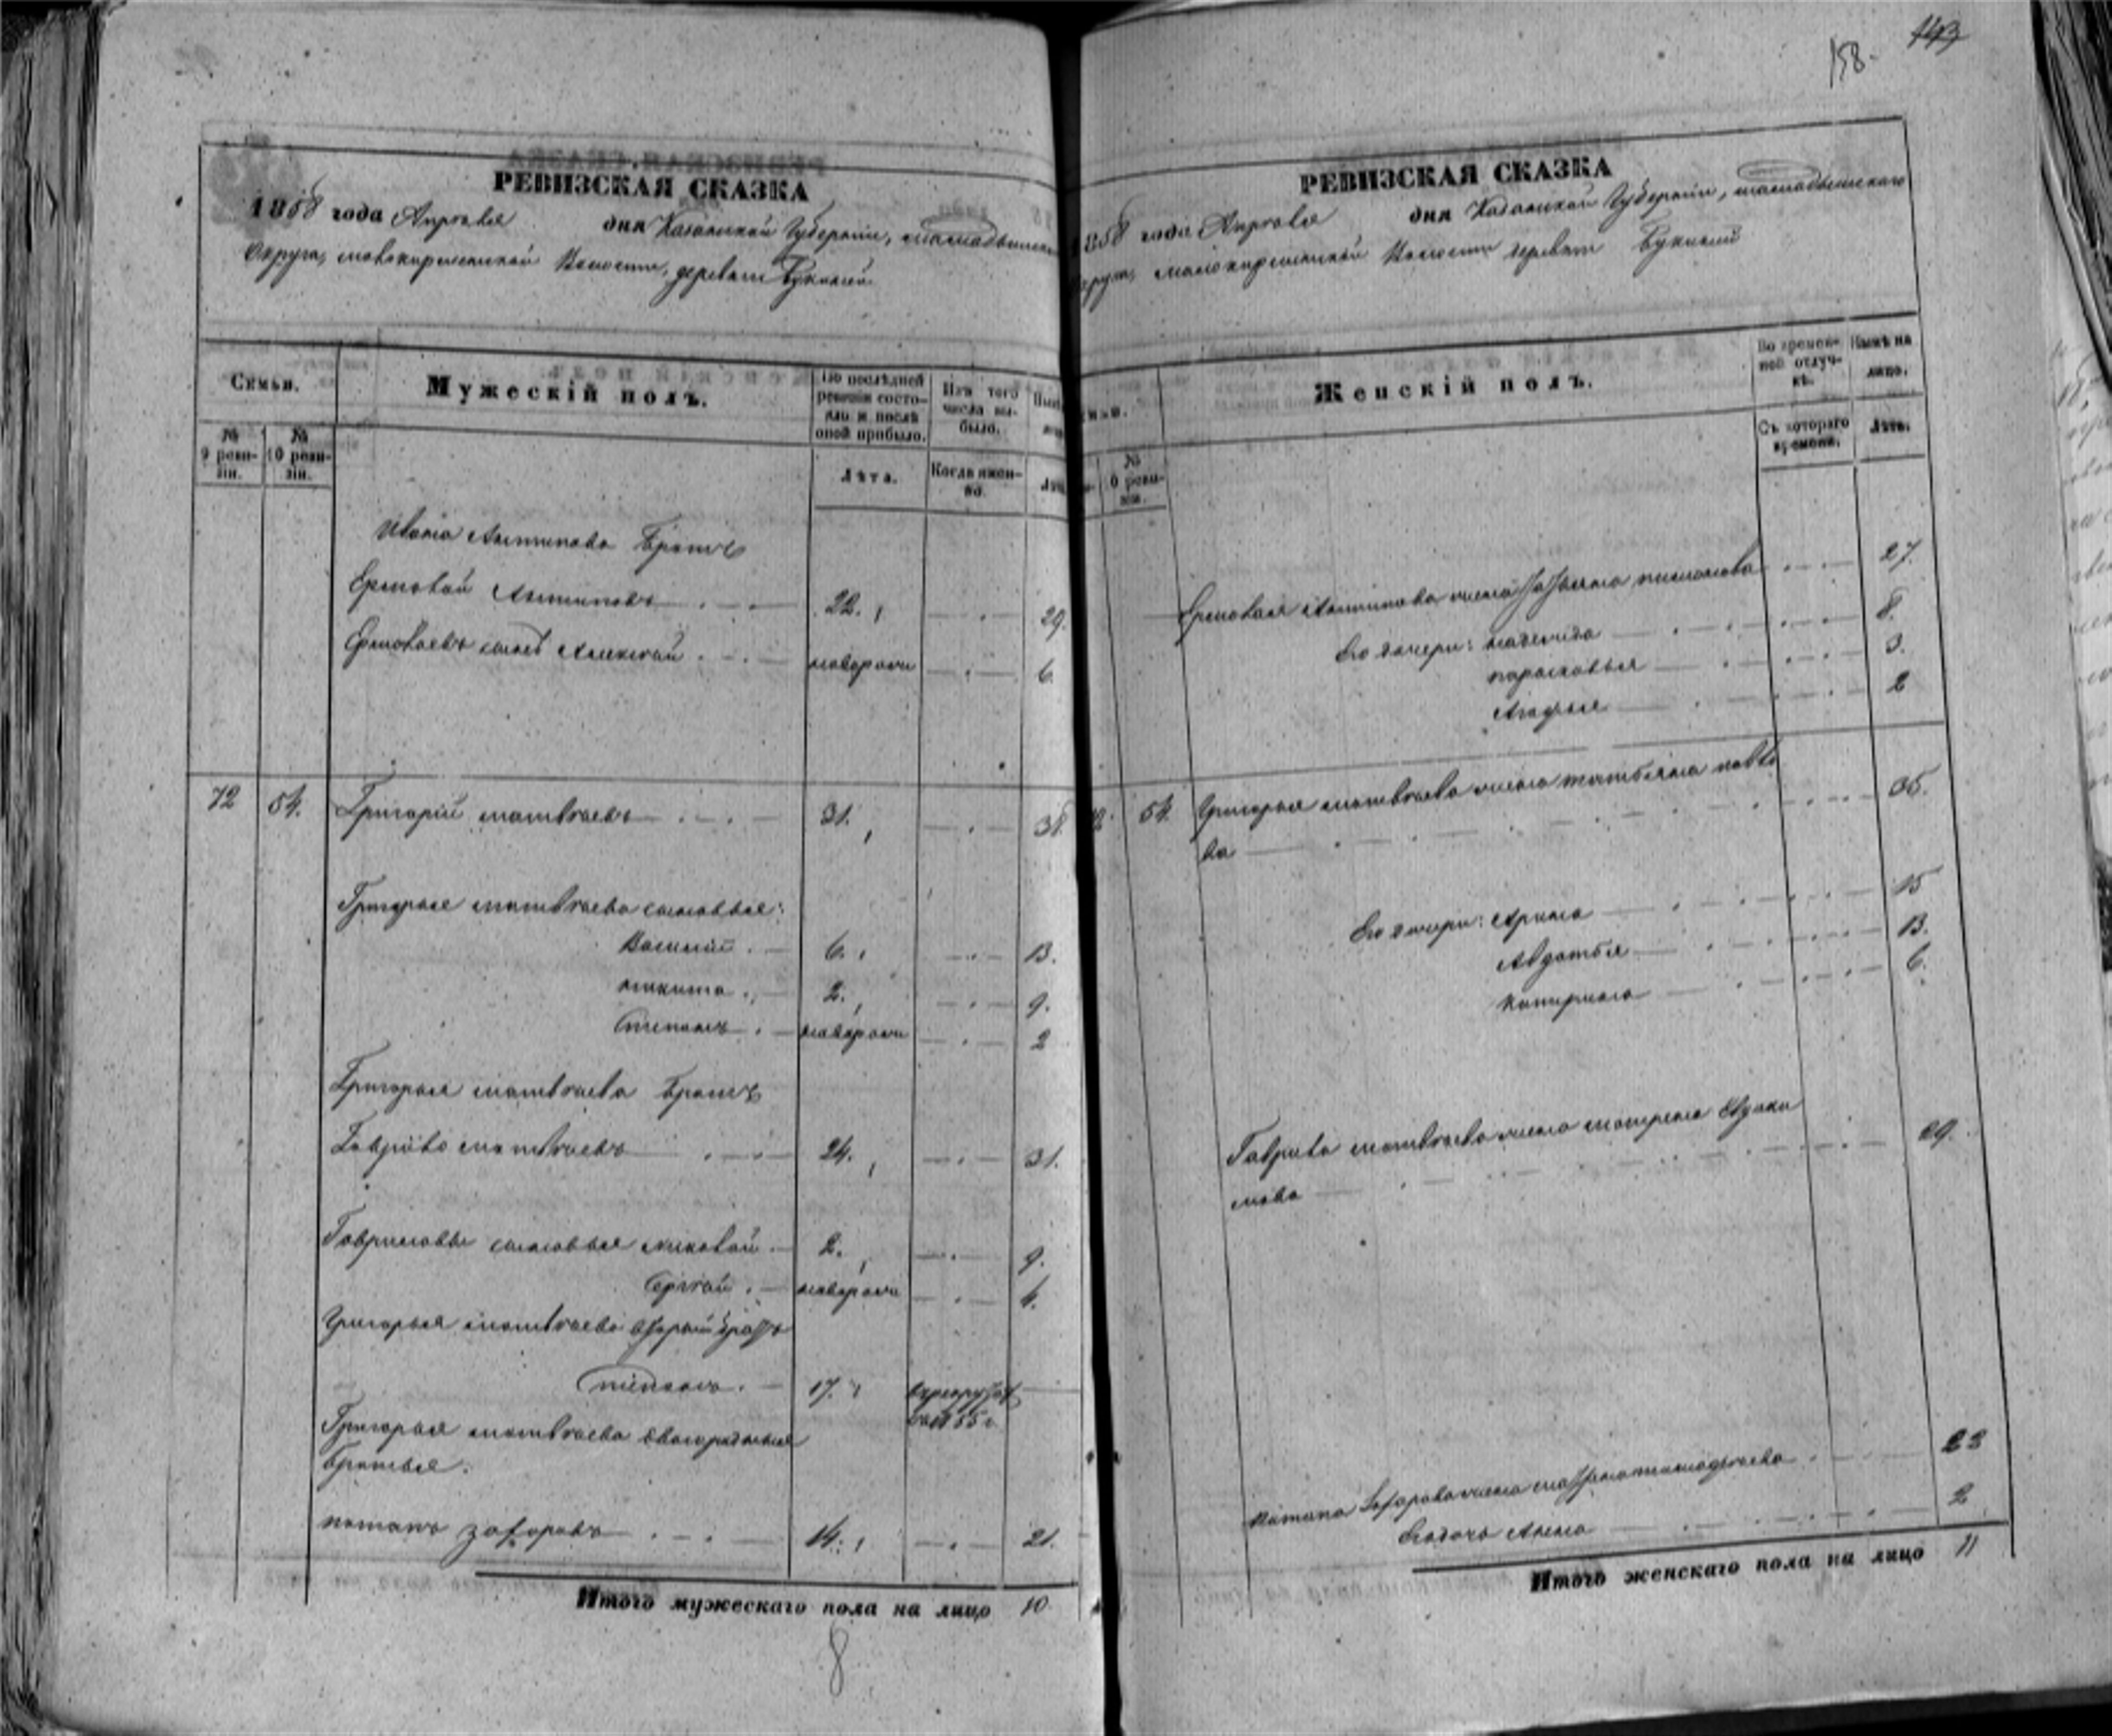 РЕВИЗСКАЯ СКАЗКА
1858 года Апреля дня Казанской Губернии, Мамадышскаго
Округа, Волости, деревни
Семьи.
Мужескій полъ.
По послѣдней ревизіи состояло и послѣ оной прибыло.
Изъ того числа выбыло.
№ 9 ревизіи.
№ 10 ревизіи.
Лѣта.
Когда именно.
Ивана Антипова братъ
Ермолай Антиповъ 22. 29.
Ермолаевъ сынъ Алексей новорожд 6.
72 54. Григорій Матвеевъ 31. 38
Григорья Матвеева сыновья:
Василій 6. 13.
Никита 2. 9.
Степанъ новорож 2
Григорья Матвеева братъ
Гаврило Матвеевъ 24. 31.
Гавриловы сыновья Николай 2. 9.
Сергей новорож 4.
Григорья Матвеева вторый братъ
Степанъ 17.
в рекруты в 1855 г.
Григорья Матвеева двоюродные
братья:
Потапъ Захаровъ 14. 21.
Итого мужескаго пола на лицо 10
8
158. 143
РЕВИЗСКАЯ СКАЗКА
1858 года Апреля дня Казанской Губернии, Мамадышскаго
Волости деревни
Женскій полъ.
Во временной отлучкѣ.
Нынѣ на лицо.
№ 10 ревизіи.
Съ котораго времени.
Лѣта.
Ермолая Антипова жена 27.
Его дочери: 8.
Парасковья 3.
Агафья 2
54. Григорья Матвеева жена Татьяна Павло
ва 36.
Его дочери: Арина 15
Авдотья 13.
Катерина 6.
Гаврила Матвеева жена Матрена Евдоки
мова 29.
Потапа Захарова жена 22
Его дочь Анна 2
Итого женскаго пола на лицо 11